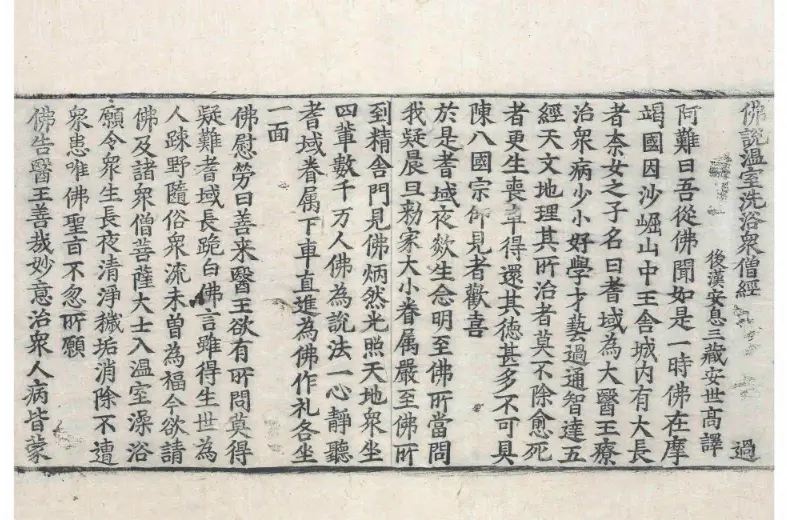 佛說溫室洗浴衆僧經 過
後漢安息三藏安世高譯
阿難曰吾從佛聞如是一時佛在摩
竭國因沙崛山中王舍城内有大長
者柰女之子名曰耆域為大醫王療
治衆病少小好學才藝過通智達五
經天文地理其所治者莫不除愈死
者更生喪車得還其德甚多不可具
陳八國宗仰見者歡喜
於是耆域夜欻生念明至佛所當問
我疑晨旦勑家大小眷属嚴至佛所
到精舍門見佛炳然光照天地衆坐
四輩數千万人佛為說法一心靜聽
耆域眷属下車直進為佛作礼各坐
一面
佛慰勞曰善来醫王欲有所問莫得
疑難耆域長跪白佛言雖得生世為
人踈野隨俗衆流未曽為福今欲請
佛及諸衆僧菩薩大士入溫室澡浴
願令衆生長夜清淨穢垢消除不遭
衆患唯佛聖旨不忽所願
佛告醫王善哉妙意治衆人病皆蒙